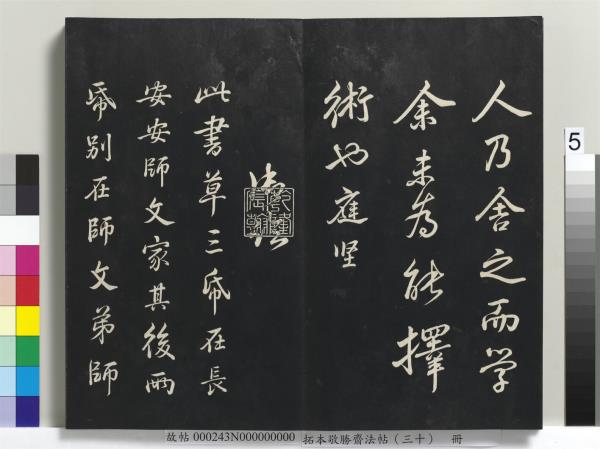 人乃舍之而学
余未为能擇
術也庭坚
此書草三帋在長
安安師文家其後兩
帋別在師文弟師
5
故帖 000243N000000000 拓本敬勝齋法帖（三十） 冊